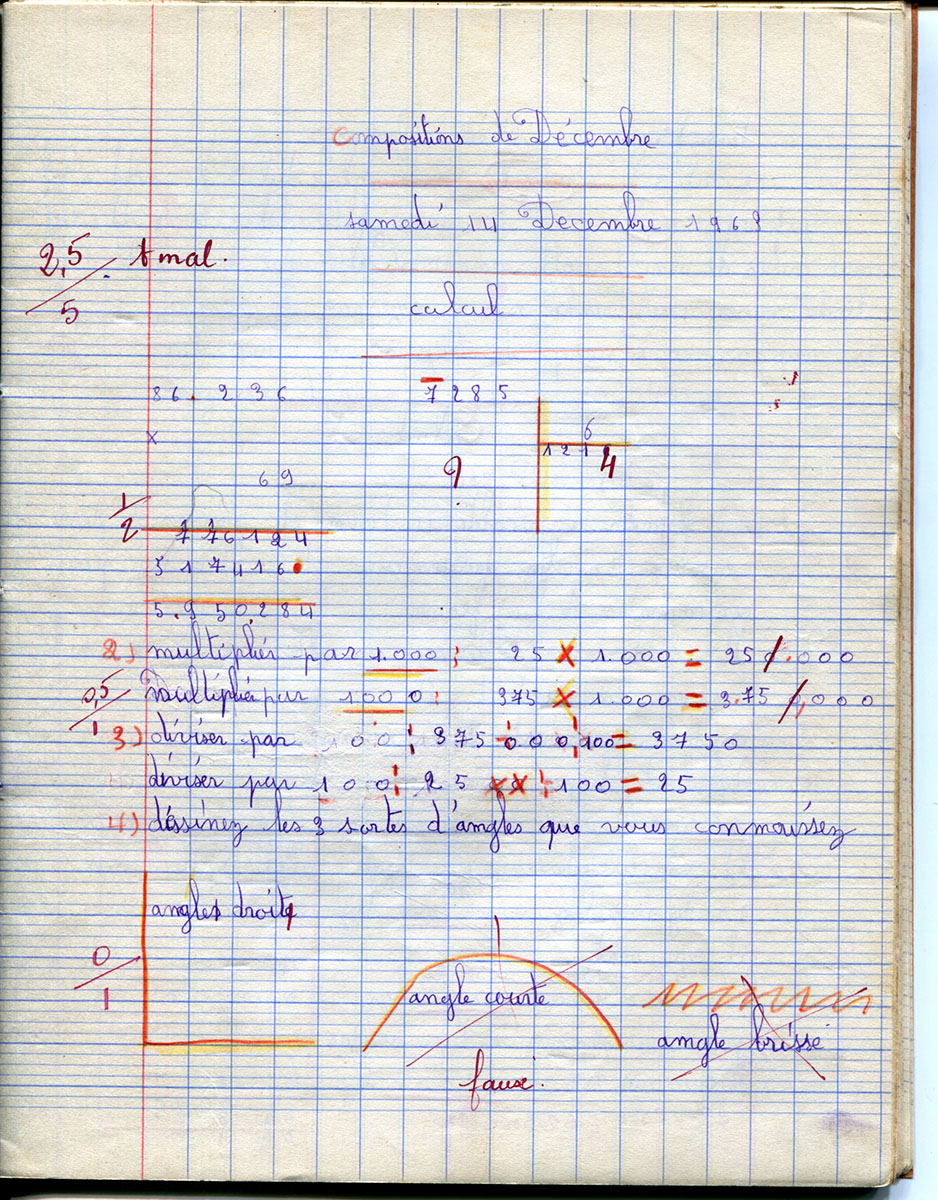 compositions de Décembre
samedi 14 Decembre 1963
2,5
5
t mal.
calcul
86.236
x
69
1
2
776124
517416.
5.950.284
7285
6
1214
?
2) multiplier par 1.000 : 25 x 1.000 = 25.000
0,5
1
multiplié par 1000 : 375 x 1.000 = 3.75.000
3) diviser par 100 : 375 000 : 100 = 3750
diviser par 100 : 25 xx : 100 = 25
4) déssinez les 3 sortes d'angles que vous connoussez
angles droits
0
1
angle courte
angle brisse
faux.